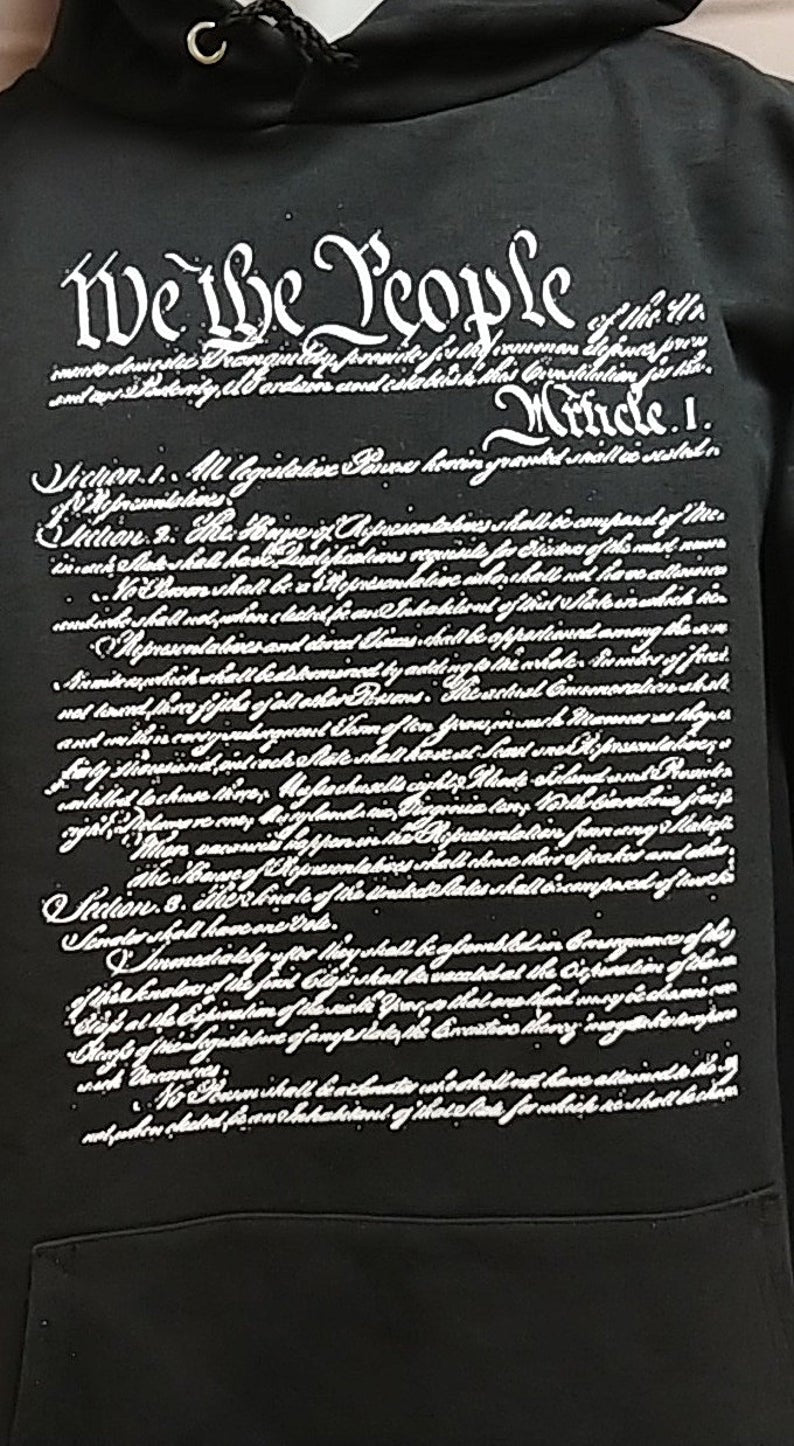 We the People of the Un
insure domestic Tranquility, provide for the common defence, prom
and our Posterity, do ordain and establish this Constitution for the
Article. I.
Section. 1. All legislative Powers herein granted shall be vested in
of Representatives.
Section. 2. The House of Representatives shall be composed of Mem
in each State shall have Qualifications requisite for Electors of the most num
No Person shall be a Representative who shall not have attained
and who shall not, when elected, be an Inhabitant of that State in which he
Representatives and direct Taxes shall be apportioned among the
Numbers, which shall be determined by adding to the whole Number of free
not taxed, three fifths of all other Persons. The actual Enumeration shall
and within every subsequent Term of ten Years, in such Manner as they
thirty Thousand, but each State shall have at Least one Representative;
entitled to chuse three, Massachusetts eight, Rhode Island and Providen
eight, Delaware one, Maryland six, Virginia ten, North Carolina five,
When vacancies happen in the Representation from any State,
The House of Representatives shall chuse their Speaker and other
Section. 3. The Senate of the United States shall be composed of two
Senator shall have one Vote.
Immediately after they shall be assembled in Consequence of the
of the Senators of the first Class shall be vacated at the Expiration of the
Class at the Expiration of the sixth Year, so that one third may be chosen
Recess of the Legislature of any State, the Executive thereof may make tempora
such Vacancies.
No Person shall be a Senator who shall not have attained to the
not, when elected, be an Inhabitant of that State for which he shall be chosen